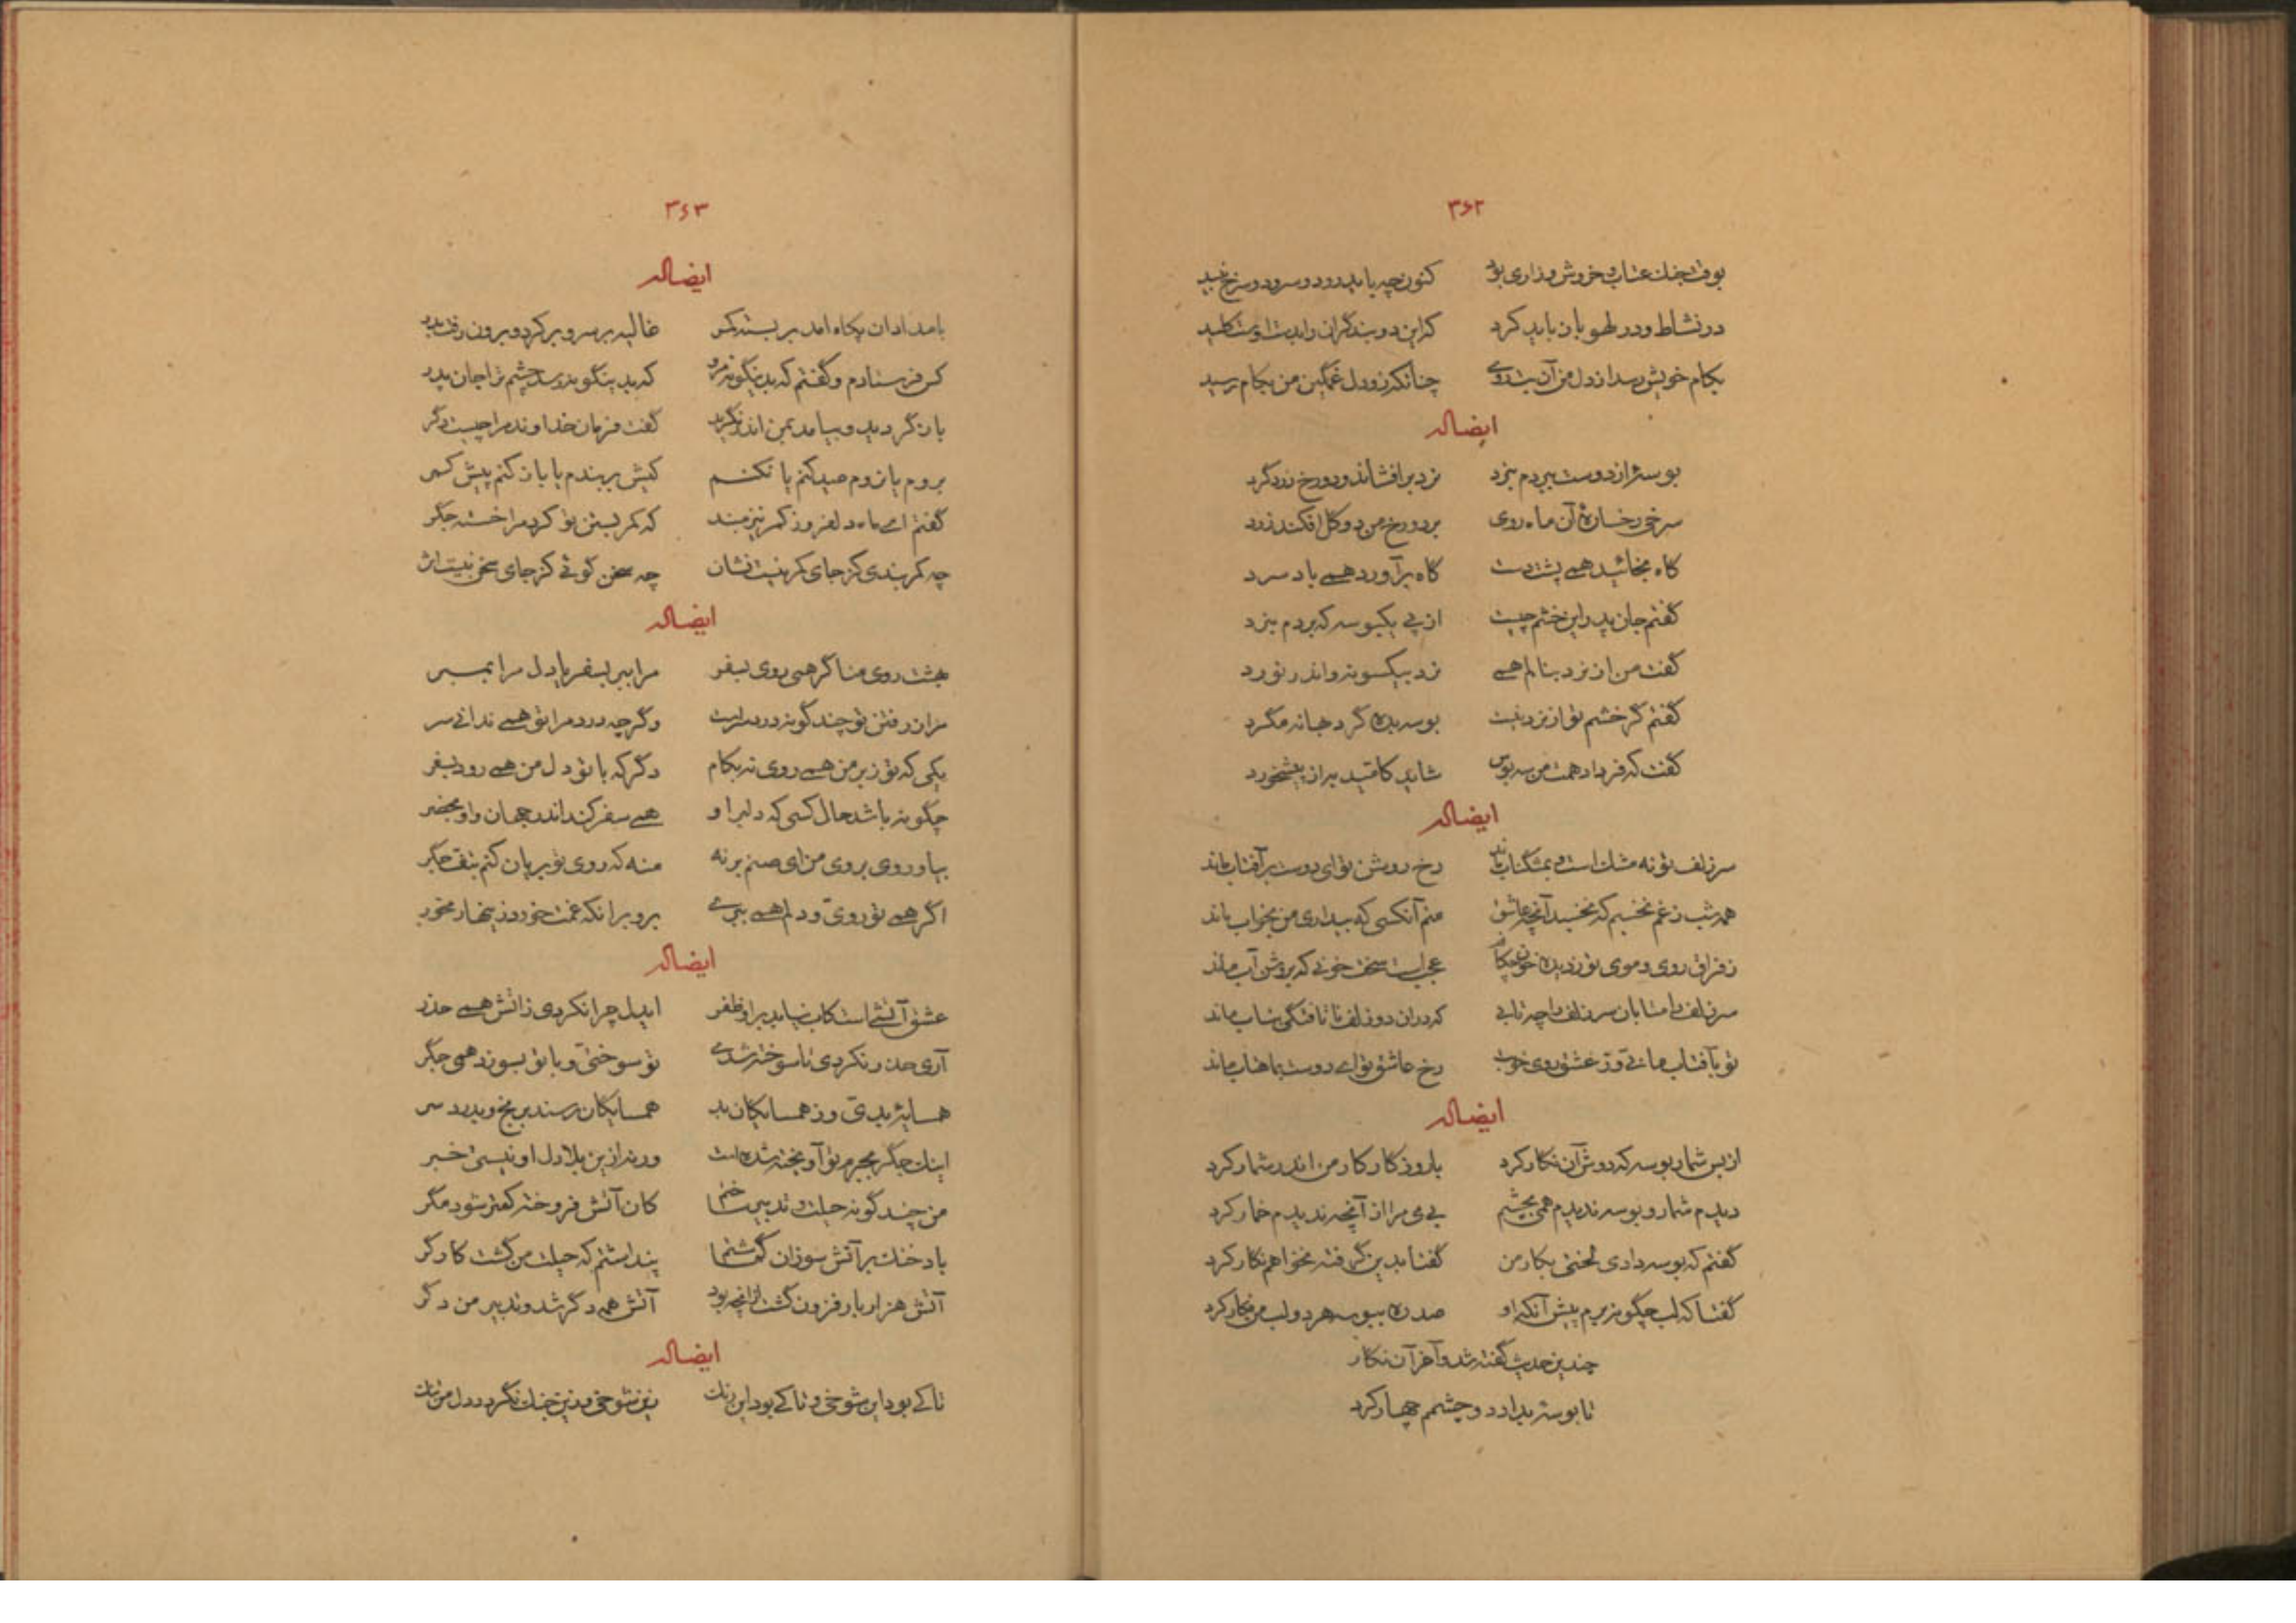 ۳۶۲
بوقت جنك عتاب و خروش و زاری بود کنون چه باید رود و سرود و سرخ نبید
در نشاط و در لهو باز باید کرد که این دو بند گران را بدست اوست کلید
بکام خویش رسد از دل من آن بت روی چنانکه زو دل غمگین من بکام رسید
ایضاله
بوسهٔ از دوست ببردم بنرد نرد برافشاند و دو رخ زرد کرد
سرخی رخسارهٔ آن ماه روی بر دو رخ من دو گل افکند زرد
گاه بخائید همی پشت دست گاه برآورد همی باد سرد
گفتم جان پدر این خشم چیست از پی یکبوسه که بردم بنرد
گفت من از نرد بنالم همی نرد بیکسو نه و اندر نورد
گفتم گر خشم تو از نرد نیست بوسه بده گرد بهانه مگرد
گفت که فردا دهمت من سه بوس شاید کامّید به از پیشخورد
ایضاله
سر زلف تو نه مشك است و بمشگناب ماند رخ روشن تو ای دوست بر آفتاب ماند
همه شب ز غم نخسبم که نخسبد آنچه عاشق منم آنکسی که بیداری من بخواب ماند
ز فراق روی و موی تو ز دیده خون چکانم عجب است سخت خونی که بروشن آب ماند
سر زلف را متابان سر زلف را چه تابی که دران دو زلف ناتافتگی بتاب ماند
تو بآفتاب مانی و ز عشق روی خوبت رخ عاشق تو ای دوست بماهتاب ماند
ایضاله
از بس شمار بوسه که دوش آن نگار کرد با روزگار کار من اندر شمار کرد
دیدم شمار و بوسه ندیدم همی بچشم بی می مرا از آنچه ندیدم خمار کرد
گفتم که بوسه دادی لختی بکار من گفتا بدین گرفته نخواهم نگار کرد
گفتا که لب چگونه برم پیش آنکه او صد ره ببوسه هر دو لب من فگار کرد
چندین حدیث گفته شد و آخر آن نگار
تا بوسهٔ بداد دو چشمم چهار کرد
۳۶۳
ایضاله
بامدادان پگاه امد بر بسته کمر غالیه بر سر و بر کرد و برون رفت بدر
کس فرستادم و گفتم که بدینگونه مرو که بدینگونه رسد چشم ترا جان پدر
باز گردید و بیامد بمن اندر نگرید گفت فرمان خداوند مرا چیست دگر
بروم یا نروم صید کنم یا نکنم کیش بربندم یا باز کنم پیش کمر
گفتم ای ماه دلفروز کمر نیز مبند که کمر بستن تو کرد مرا خسته جگر
چه کمر بندی کز جای کمر نیست نشان چه سخن گوئی کز جای سخن نیست اثر
ایضاله
بهشت روی منا گر همی روی بسفر مرا ببر بسفر یا دل مرا بمبر
مرا ز رفتن تو چند گونه درد سرست و گرچه درد مرا تو همی ندانی سر
یکی که تو ز بر من همی روی نه بکام دگر که با تو دل من همی رود بسفر
چگونه باشد حال کسی که دلبر او همی سفر کند اندر جهان و او بحضر
بیا و روی بروی من ای صنم برنه منه که روی تو بریان کنم بتف جگر
اگر همی تو روی و دلم همی ببری برو بر انکه غمت خورد زینهار مخور
ایضاله
عشق آتشی است کاب نیاید بر او ظفر ایدل چرا نکردی ز اتش همی حذر
آری حذر نکردی تا سوخته شدی تو سوختی و با تو بسوزد همی جگر
همسایهٔ بدیّ و ز همسایگان بد همسایگان رسند برنج و بدرد سر
اینك جگر بجرم تو آویخته شده است ورنه ازین بلا دل او نیستی خبر
من چند گونه حیلت و تدبیر ساختم کان آتش فروخته کمتر شود مگر
باد خنك بر آتش سوزان گماشتم پنداشتم که حیلت من گشت کارگر
آتش هزار بار فزون گشت از آنچه بود آتش همه دگر شد و تدبیر من دگر
ایضاله
تا کی بود این شوخی و تا کی بود این رنك زین شوخی و زین جنك نگردد دل من تنك